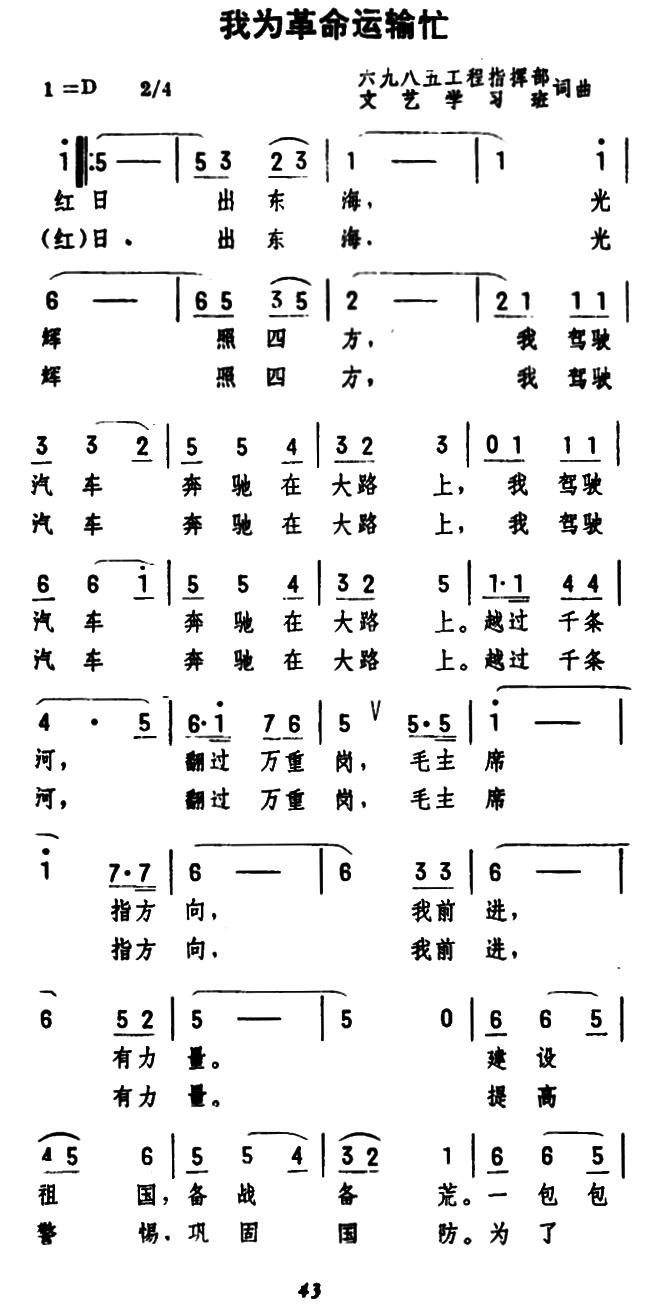 我为革命运输忙
1=D 2/4 六九八五工程指挥部
文艺学习班 词曲
i ‖: 5 — | 5 3 2 3 | 1 — | 1 i |
红 日 出 东 海, 光
(红)日. 出 东 海. 光
6 — | 6 5 3 5 | 2 — | 2 1 1 1 |
辉 照 四 方, 我 驾驶
辉 照 四 方, 我 驾驶
3 3 2 | 5 5 4 | 3 2 3 | 0 1 1 1 |
汽 车 奔 驰 在 大路 上, 我 驾驶
汽 车 奔 驰 在 大路 上, 我 驾驶
6 6 i | 5 5 4 | 3 2 5 | 1·1 4 4 |
汽 车 奔 驰 在 大路 上。越过 千条
汽 车 奔 驰 在 大路 上。越过 千条
4 · 5 | 6·i 7 6 | 5 V 5·5 | i — |
河, 翻过 万重 岗, 毛主 席
河, 翻过 万重 岗, 毛主 席
i 7·7 | 6 — | 6 3 3 | 6 — |
指方 向, 我前 进,
指方 向, 我前 进,
6 5 2 | 5 — | 5 0 | 6 6 5 |
有力 量。 建 设
有力 量。 提 高
4 5 6 | 5 5 4 | 3 2 1 | 6 6 5 |
祖 国, 备 战 备 荒。一 包 包
警 惕, 巩 固 国 防。为 了
43